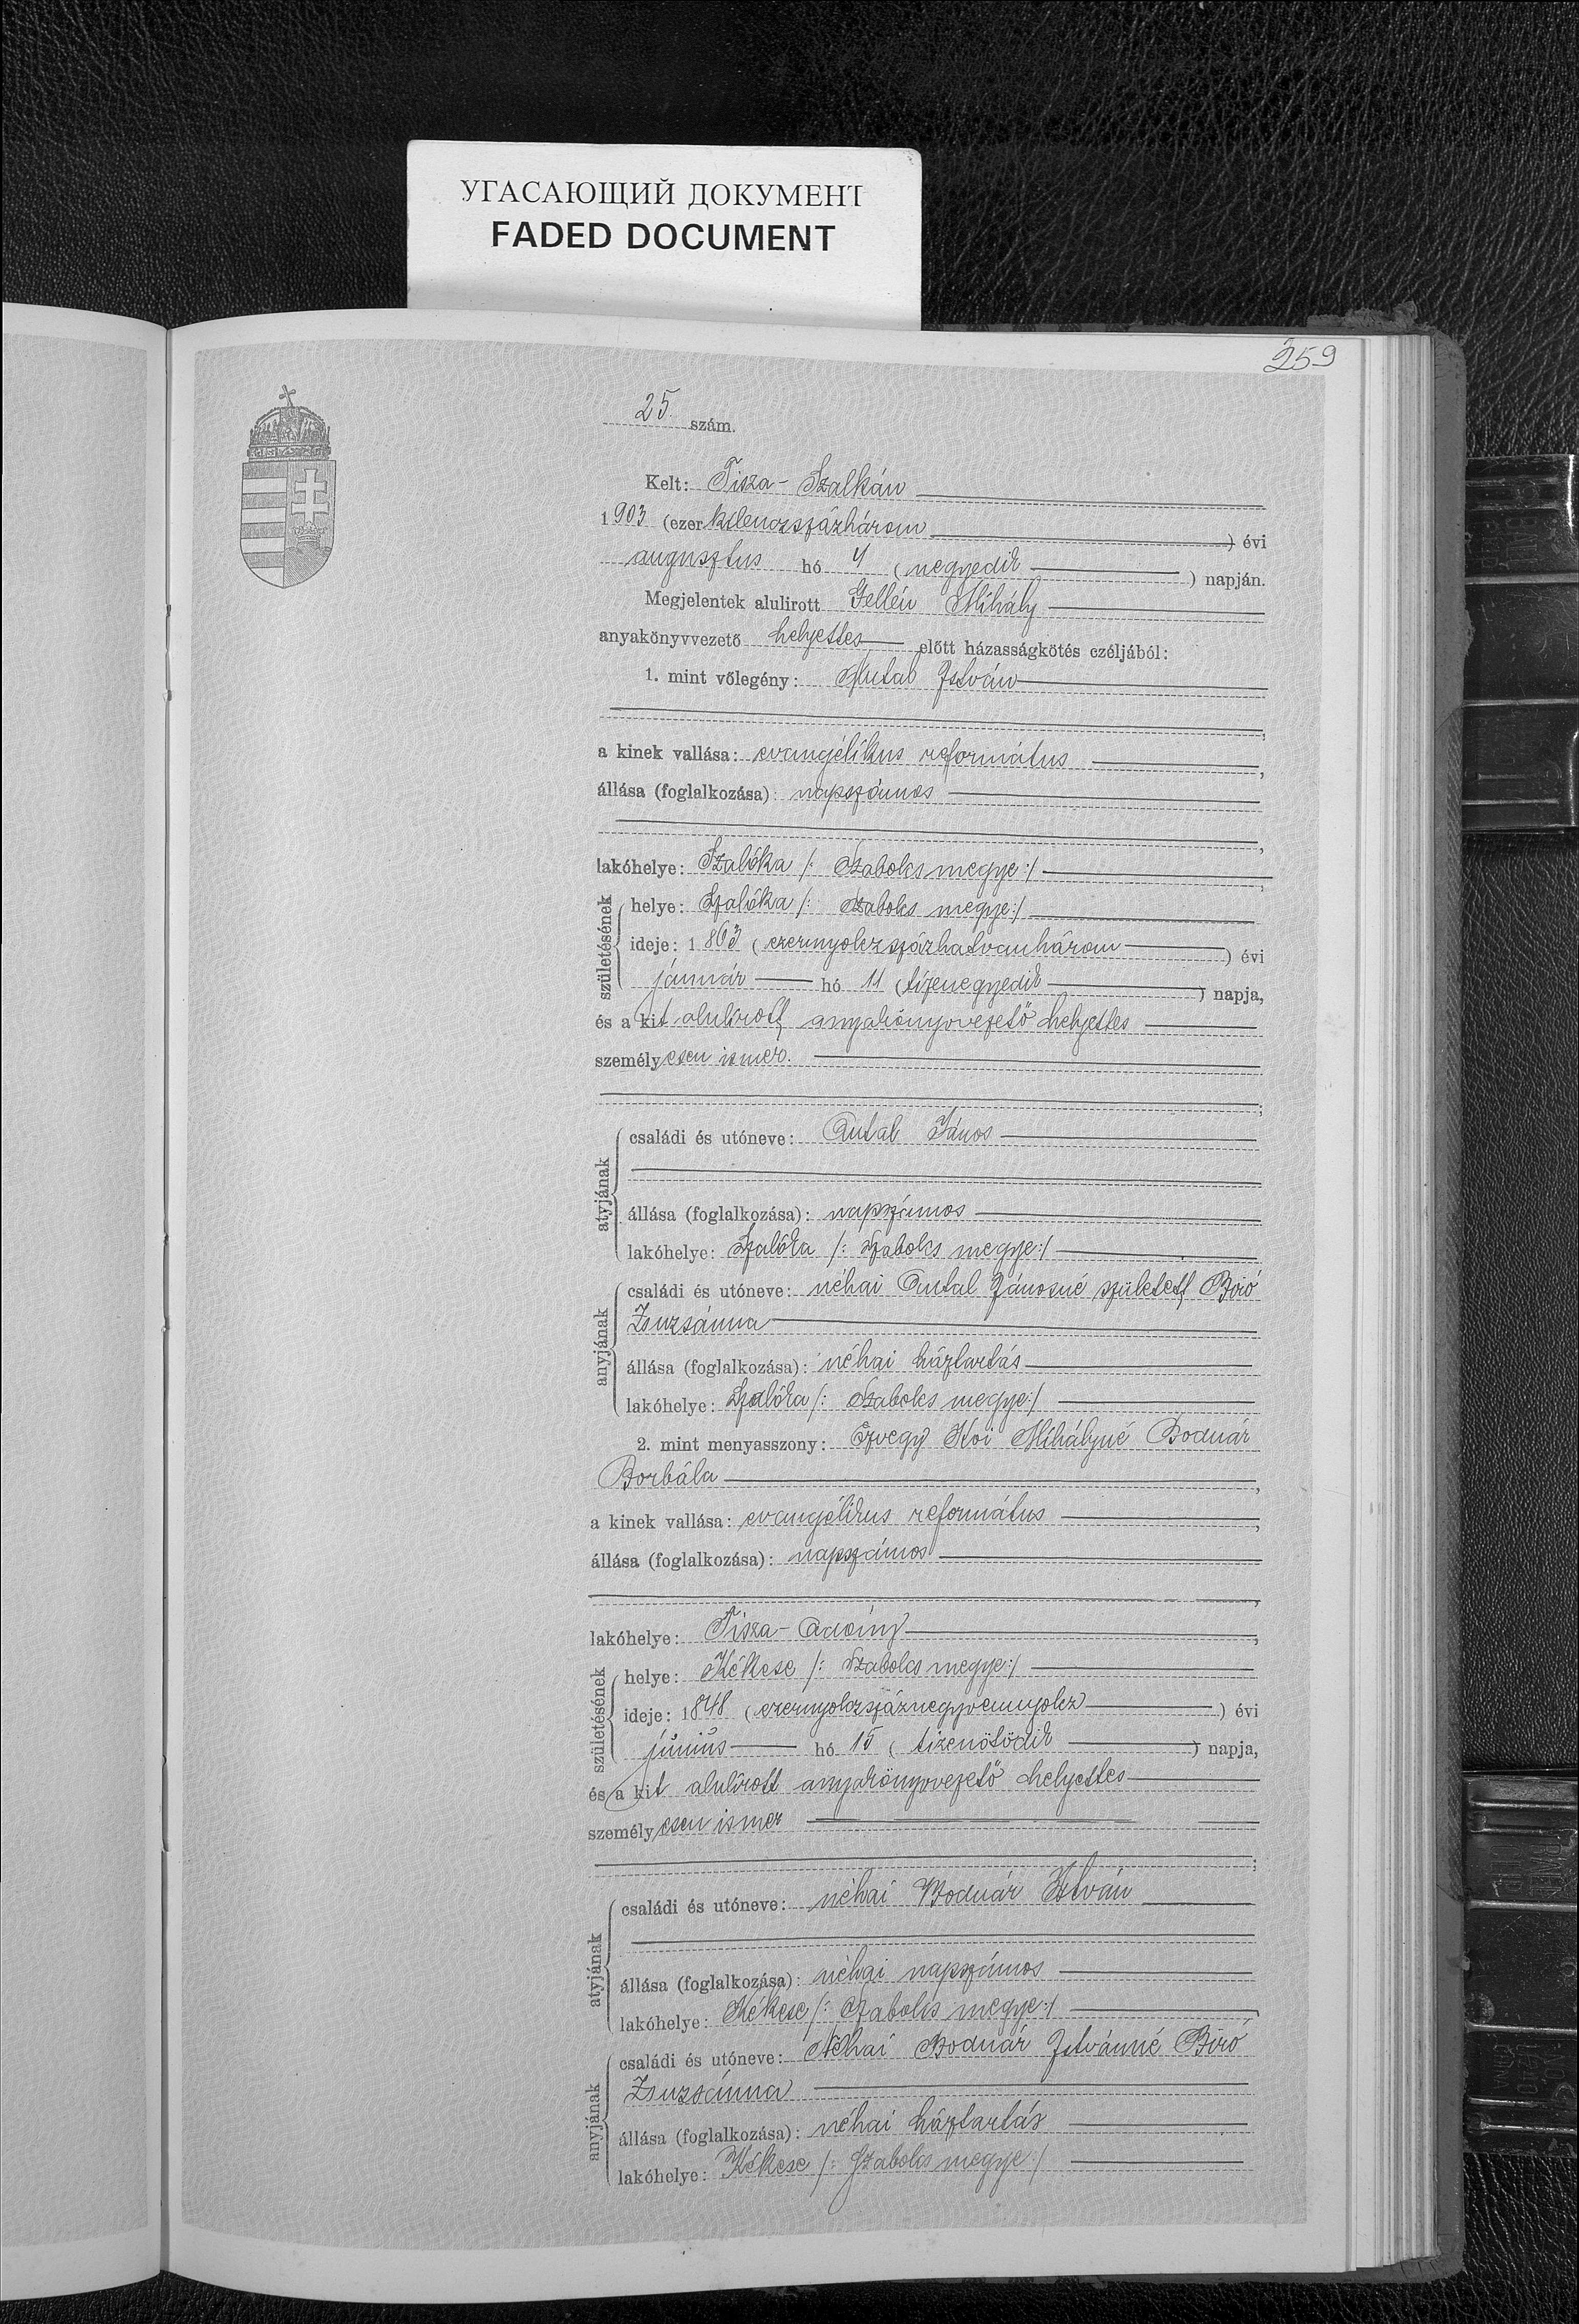 УГАСАЮЩИЙ ДОКУМЕНТ
FADED DOCUMENT
259
25. szám.
Kelt: Tisza-Szalkán
1903 (ezer kilenczszázhárom) évi
augusztus hó 4 (negyedik) napján.
Megjelentek alulirott Gellén Mihály
anyakönyvvezető helyettes előtt házasságkötés czéljából:
1. mint vőlegény: Antal István
a kinek vallása: evangélikus református
állása (foglalkozása): napszámos
lakóhelye: Szalóka /: Szabolcs megye :/
születésének
helye: Szalóka /: Szabolcs megye :/
ideje: 1863 (ezernyolczszázhatvanhárom) évi
január hó 11 (tizenegyedik) napja,
és a kit alulirott anyakönyvvezető helyettes
személyesen ismer.
atyjának
családi és utóneve: Antal János
állása (foglalkozása): napszámos
lakóhelye: Szalóka /: Szabolcs megye :/
anyjának
családi és utóneve: néhai Antal Jánosné született Biró
Zsuzsánna
állása (foglalkozása): néhai háztartás
lakóhelye: Szalóka /: Szabolcs megye :/
2. mint menyasszony: Özvegy Koi Mihályné Bodnár
Borbála
a kinek vallása: evangélikus református
állása (foglalkozása): napszámos
lakóhelye: Tisza-Adony
születésének
helye: Kékcse /: Szabolcs megye :/
ideje: 1848 (ezernyolczszáznegyvennyolcz) évi
június hó 15 (tizenötödik) napja,
és a kit alulirott anyakönyvvezető helyettes
személyesen ismer
atyjának
családi és utóneve: néhai Bodnár István
állása (foglalkozása): néhai napszámos
lakóhelye: Kékcse /: Szabolcs megye :/
anyjának
családi és utóneve: Néhai Bodnár Istvánné Biró
Zsuzsánna
állása (foglalkozása): néhai háztartás
lakóhelye: Kékcse /: Szabolcs megye :/